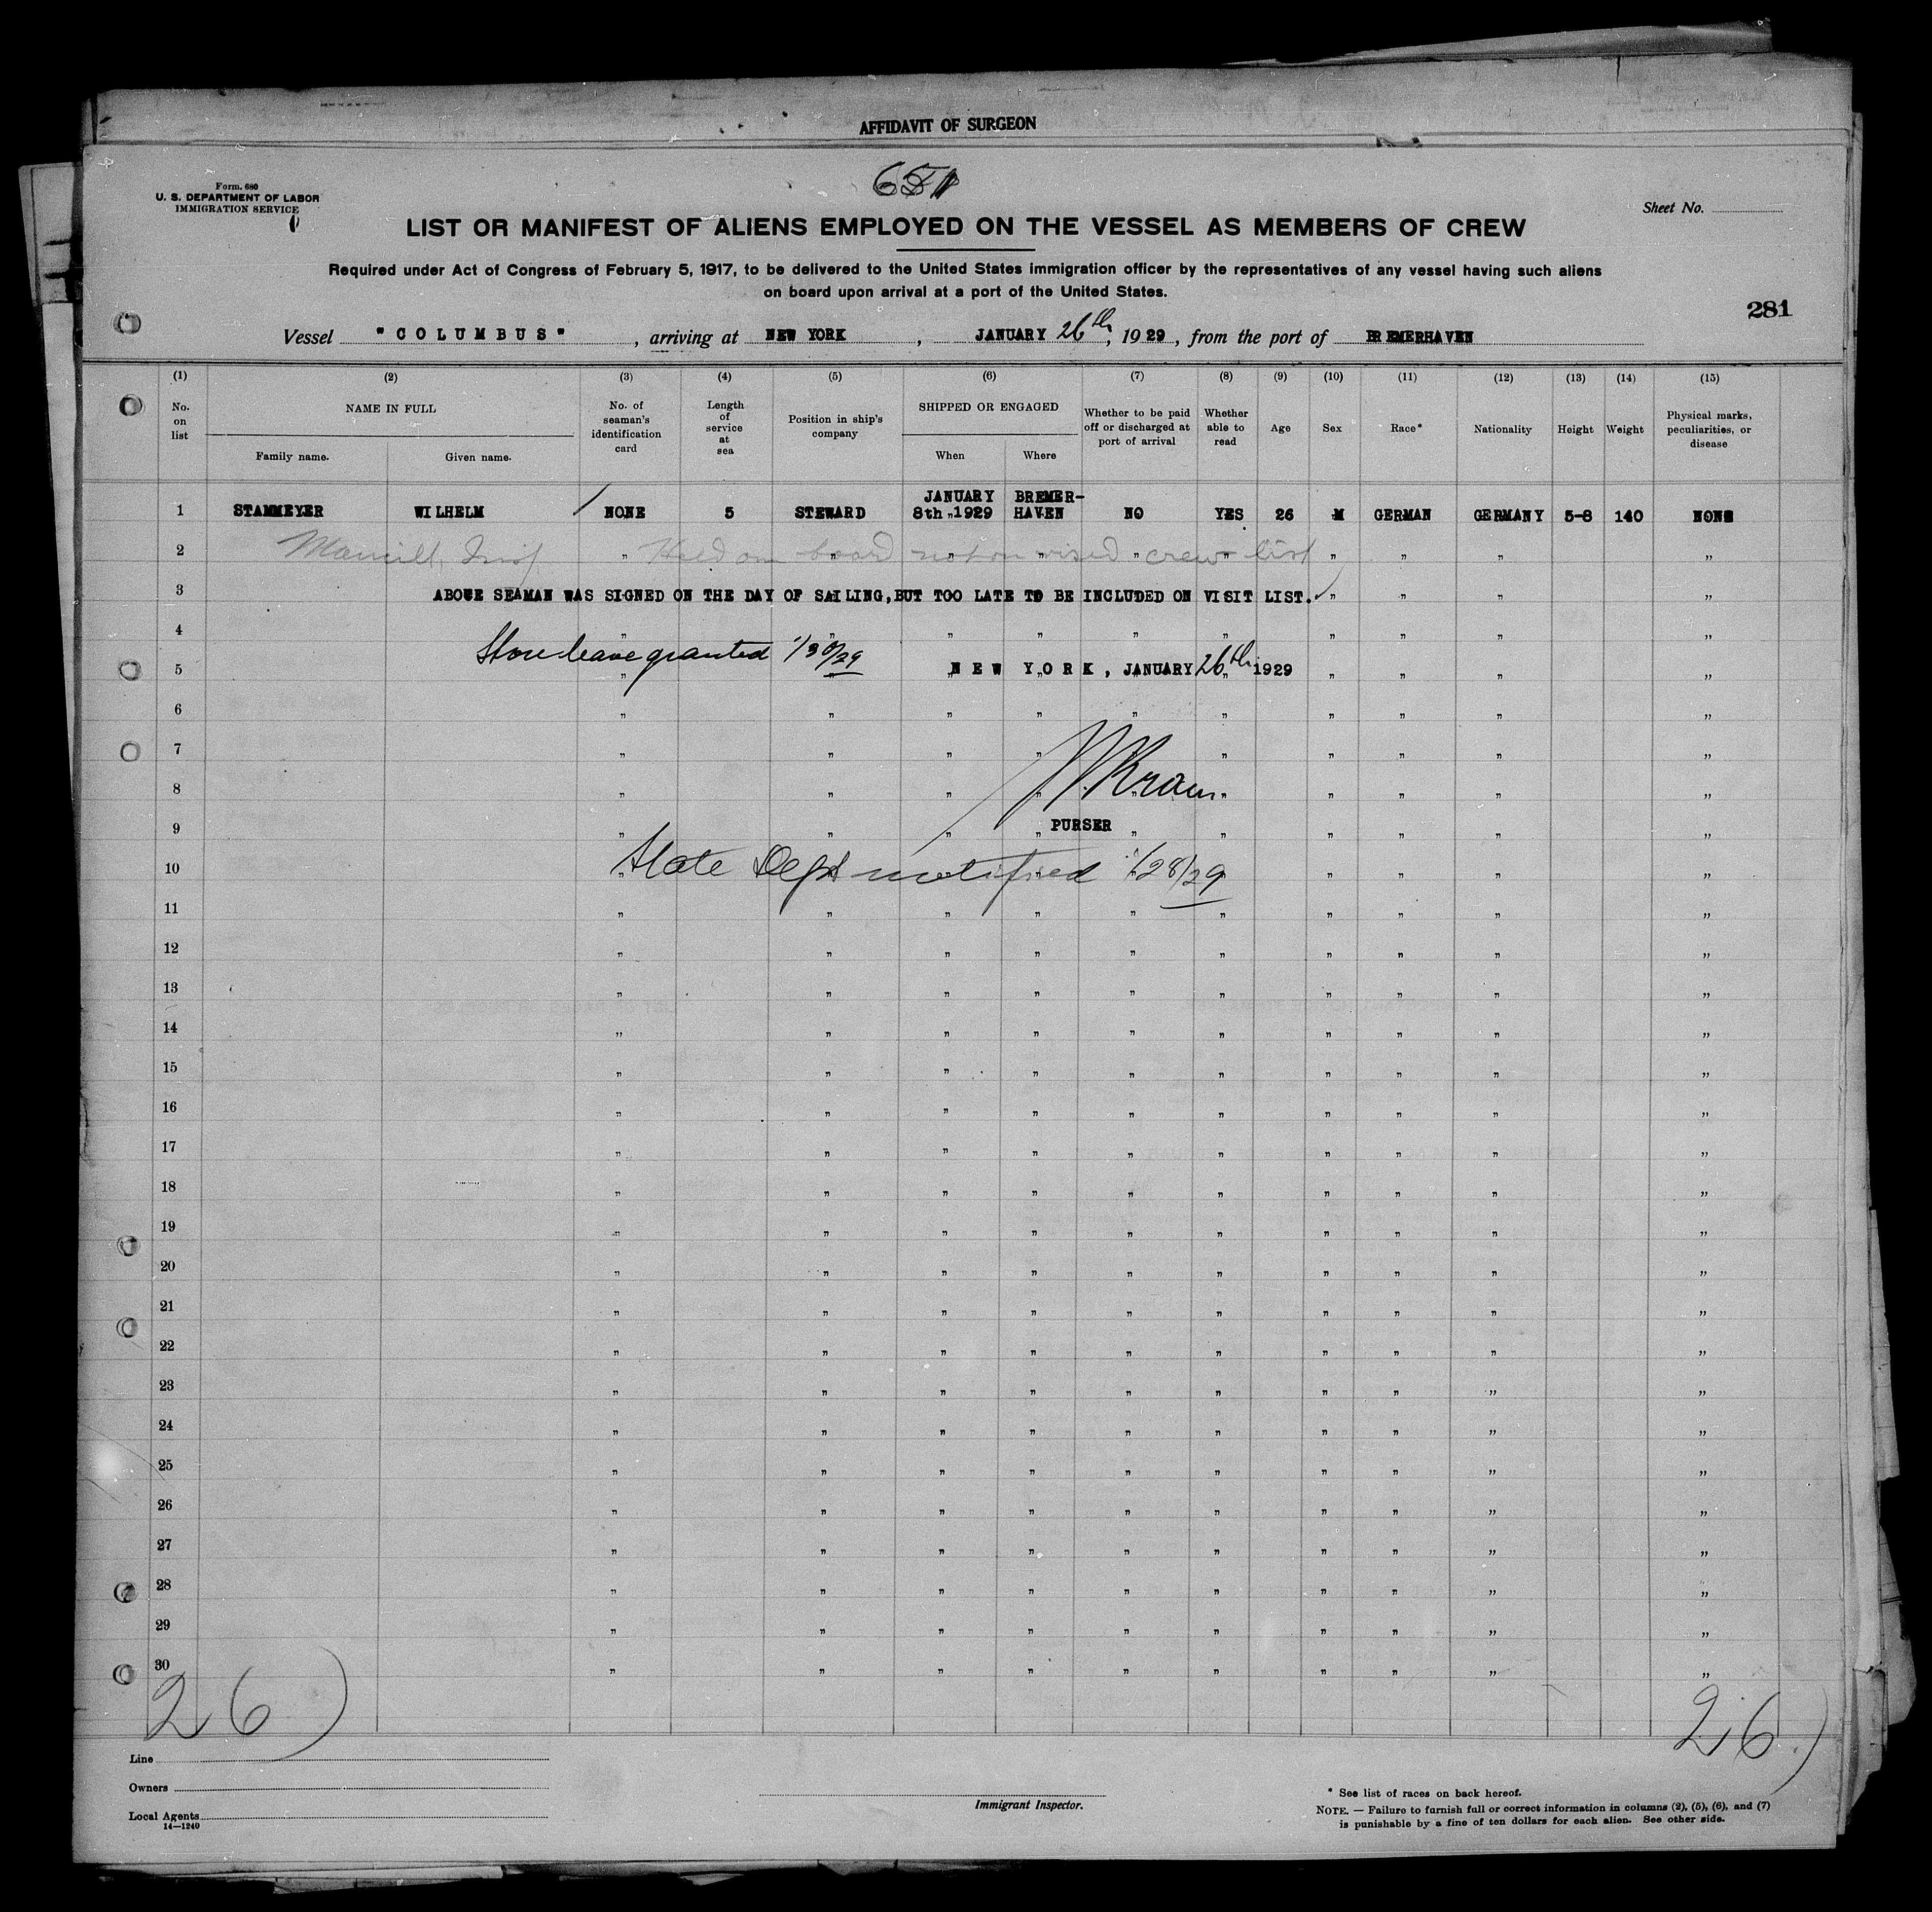 AFFIDAVIT OF SURGEON
Form. 680
U. S. DEPARTMENT OF LABOR
IMMIGRATION SERVICE
Sheet No.
LIST OR MANIFEST OF ALIENS EMPLOYED ON THE VESSEL AS MEMBERS OF CREW
Required under Act of Congress of February 5, 1917, to be delivered to the United States immigration officer by the representatives of any vessel having such aliens
on board upon arrival at a port of the United States.
281
Vessel "COLUMBUS", arriving at NEW YORK, JANUARY 26th, 1929, from the port of BREMERHAVEN
(1) (2) (3) (4) (5) (6) (7) (8) (9) (10) (11) (12) (13) (14) (15)
No. on list NAME IN FULL Family name. Given name. No. of seaman's identification card Length of service at sea Position in ship's company SHIPPED OR ENGAGED When Where Whether to be paid off or discharged at port of arrival Whether able to read Age Sex Race* Nationality Height Weight Physical marks, peculiarities, or disease
1 STAMMEYER WILHELM NONE 5 STEWARD JANUARY 8th 1929 BREMER-HAVEN NO YES 26 M GERMAN GERMANY 5-8 140 NONE
2 Held on board not on vised crew list " " " "
3 ABOUE SEAMAN WAS SIGNED ON THE DAY OF SAILING, BUT TOO LATE TO BE INCLUDED ON VISIT LIST. " " " "
4 " " " " " " " " " "
Shore leave granted 1/30/29
5 NEW YORK, JANUARY 26th 1929 " " " "
6 " " " " " " " " " "
7 " " " " " " " " "
8 " " " " " " " " " "
9 " " " " PURSER " " " " " "
10 State Dept notified 1/28/29 " " " "
11 " " " " " " " " " "
12 " " " " " " " " " "
13 " " " " " " " " " "
14 " " " " " " " " " "
15 " " " " " " " " " "
16 " " " " " " " " " "
17 " " " " " " " " " "
18 " " " " " " " " " "
19 " " " " " " " " " "
20 " " " " " " " " " "
21 " " " " " " " " " "
22 " " " " " " " " " "
23 " " " " " " " " " "
24 " " " " " " " " " "
25 " " " " " " " " " "
26 " " " " " " " " " "
27 " " " " " " " " " "
28 " " " " " " " " " "
29 " " " " " " " " " "
30 " " " " " " " " " "
26) 26)
Line
Owners
Local Agents
14—1240
Immigrant Inspector.
* See list of races on back hereof.
NOTE. — Failure to furnish full or correct information in columns (2), (5), (6), and (7)
is punishable by a fine of ten dollars for each alien. See other side.